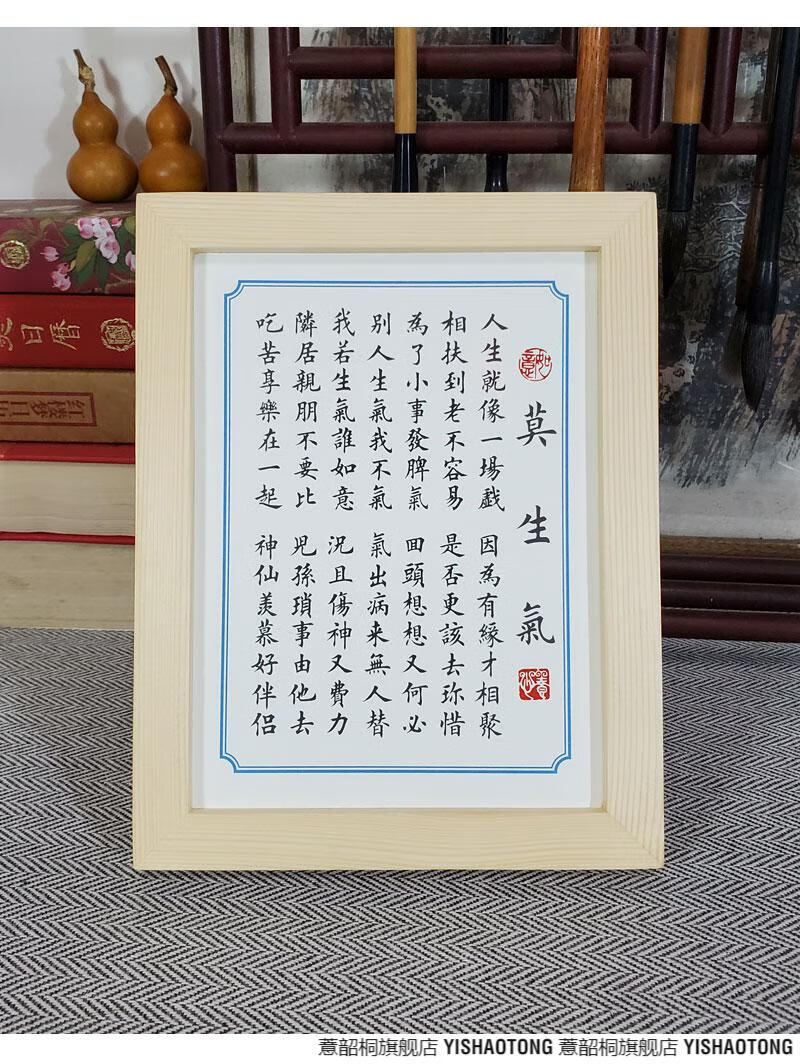 莫生氣
人生就像一場戲 因為有緣才相聚
相扶到老不容易 是否更該去珎惜
為了小事發脾氣 囬頭想想又何必
別人生氣我不氣 氣出病来無人替
我若生氣誰如意 况且傷神又費力
隣居親朋不要比 児孫瑣事由他去
吃苦享樂在一起 神仙羨慕好伴侣
如意
日曆
紅樓夢
薏韶桐旗舰店 YISHAOTONG 薏韶桐旗舰店 YISHAOTONG